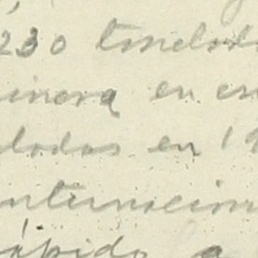 230 tonelada
inera en es
ladas en 19
nternacion
rápido a